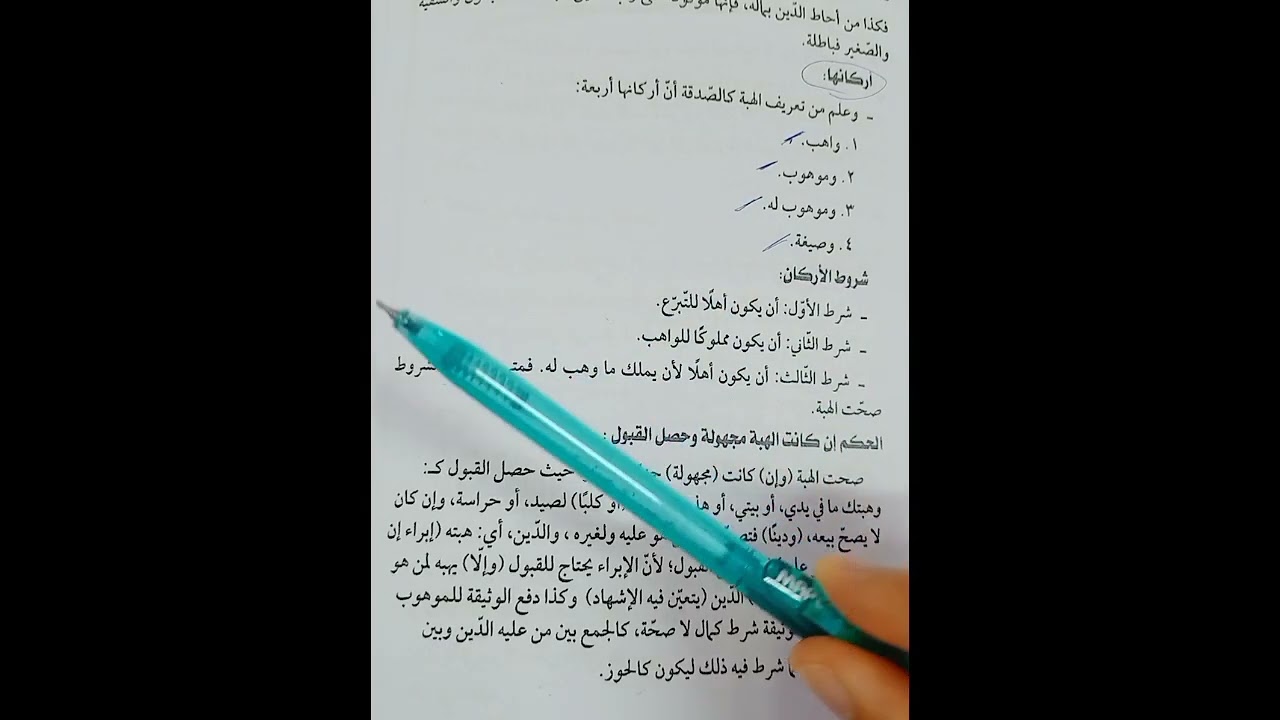 فكذا من أحاط الدّين بماله، فإنها
والصّغير فباطلة.
أركانها:
- وعلم من تعريف الهبة كالصّدقة أنّ أركانها أربعة:
١. واهب.
٢. وموهوب.
٣. وموهوب له.
٤. وصيغة.
شروط الأركان:
- شرط الأوّل: أن يكون أهلًا للتّبرّع.
- شرط الثّاني: أن يكون مملوكًا للواهب.
- شرط الثّالث: أن يكون أهلًا لأن يملك ما وهب له.
صحّت الهبة.
الحكم إن كانت الهبة مجهولة وحصل القبول:
صحت الهبة (وإن) كانت (مجهولة) حيث حصل القبول كـ:
وهبتك ما في يدي، أو بيتي، أو (أو كلبًا) لصيد، أو حراسة، وإن كان
لا يصحّ بيعه، (ودينًا) عليه ولغيره، والدّين، أي: هبته (إبراء إن
لأنّ الإبراء يحتاج للقبول (وإلّا) يهبه لمن هو
الدّين (يتعيّن فيه الإشهاد) وكذا دفع الوثيقة للموهوب
شرط كمال لا صحّة، كالجمع بين من عليه الدّين وبين
شرط فيه ذلك ليكون كالحوز.